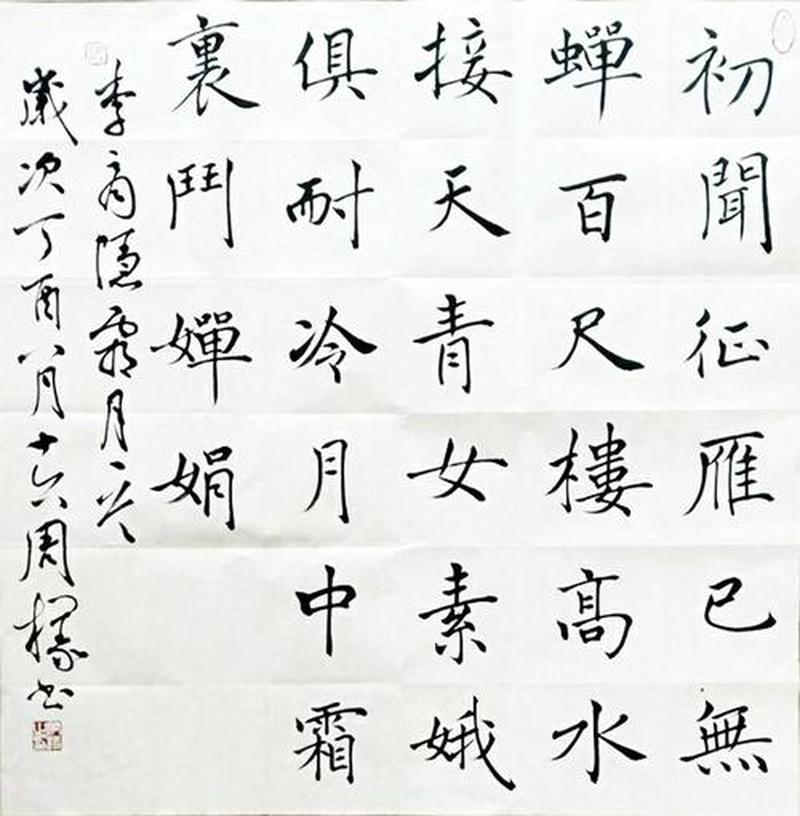 初聞征雁已無
蟬百尺樓髙水
接天青女素娥
俱耐冷月中霜
裏鬥嬋娟
李商隱霜月一首
歲次丁酉八月十六周書